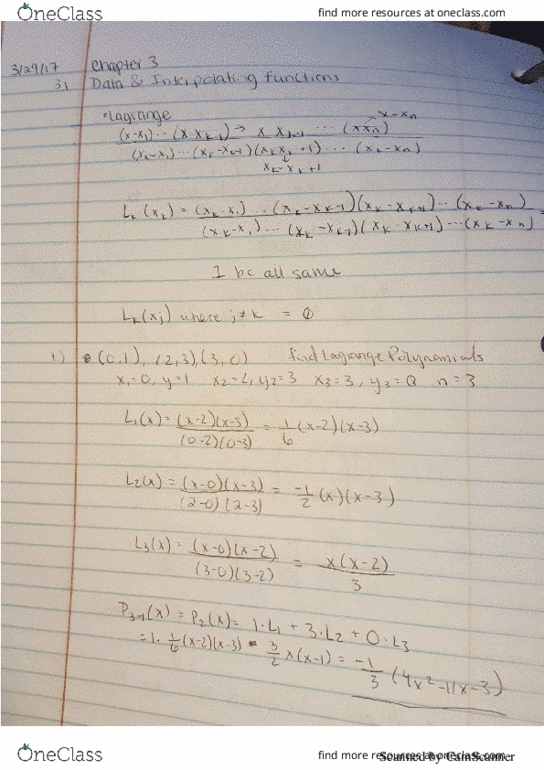 OneClass find more resources at oneclass.com
3/29/17 Chapter 3
3.1 Data & Interpolating Functions
•Lagrange
x-xn
(x-x1)...(x-xk-1) → x xk+1 ... (xxn)
(xk-x1)...(xk-xk-1)(xkxk+1)...(xk-xn)
xk-xk+1
Lk(xk) = (xk-x1)...(xk-xk-1)(xk-xk+1)...(xk-xn) =
(xk-x1)...(xk-xk-1)(xk-xk+1)...(xk-xn)
1 bc all same
Lk(xj) where j≠k = 0
1.) (0,1), (2,3), (3,0) find Lagrange Polynomials
x1=0, y=1 x2=2, y2=3 x3=3, y3=0 n=3
L1(x) = (x-2)(x-3) = 1/6 (x-2)(x-3)
(0-2)(0-3)
L2(x) = (x-0)(x-3) = -1/2 (x)(x-3)
(2-0)(2-3)
L3(x) = (x-0)(x-2) = x(x-2)
(3-0)(3-2) 3
P3-1(x) = P2(x) = 1·L1 + 3·L2 + 0·L3
= 1·1/6(x-2)(x-3) - 3/2 x(x-1) = -1/3 (4x²-11x-3)
OneClass find more resources at oneclass.com
Scanned by CamScanner